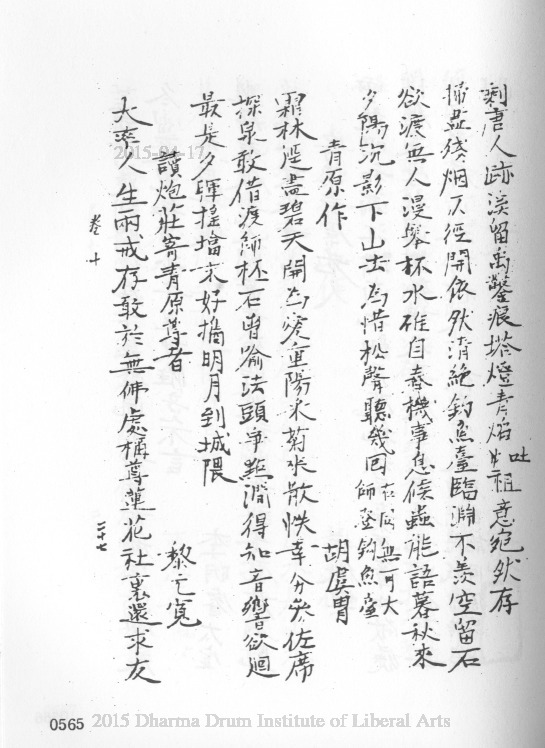 剩唐人跡渓留禹鑿痕塔燈青焰吐祖意絕然存
掃盡殘烟仄徑開依然清絕釣魚臺臨淵不羨空留石
欲渡無人漫擧杯水碓自舂機事息候蟲能語暮秋來
夕陽沉影下山去為惜松聲聽幾回 在同無可大師登釣魚臺
青原作 胡虞胄
霜林逕盡碧天開為愛重陽采菊來散帙幸分參佐席
探泉敢借渡師杯石曾喻法頭爭點澗得知音響欲迴
最是夕暉搖塔末好攜明月到城隈
讀炮莊寄青原尊者 黎元寬
大率人生兩戒存敢於無佛處稱尊蓮花社裏還求友
卷十
二十七
2015-04-17
0565 2015 Dharma Drum Institute of Liberal Arts